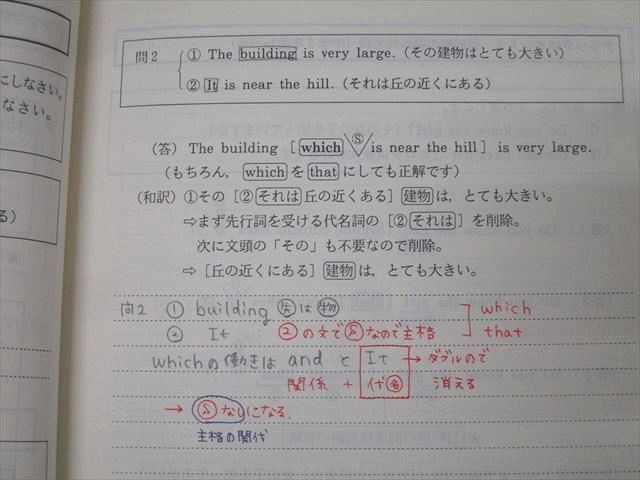 にしなさい。
なさい。
る）
問2
① The building is very large.（その建物はとても大きい）
② It is near the hill.（それは丘の近くにある）
（答） The building［which Ⓢ is near the hill］is very large.
（もちろん，whichをthatにしても正解です）
（和訳）①その［②それは丘の近くある］建物は，とても大きい。
⇨まず先行詞を受ける代名詞の［②それは］を削除。
次に文頭の「その」も不要なので削除。
⇨［丘の近くにある］建物は，とても大きい。
問2 ① building 先は物 which
② It ②の文でⓈなので主格 that
whichの働きは and と It → ダブルので
関係 + 代名 消える
→ Ⓢなしになる.
主格の関代